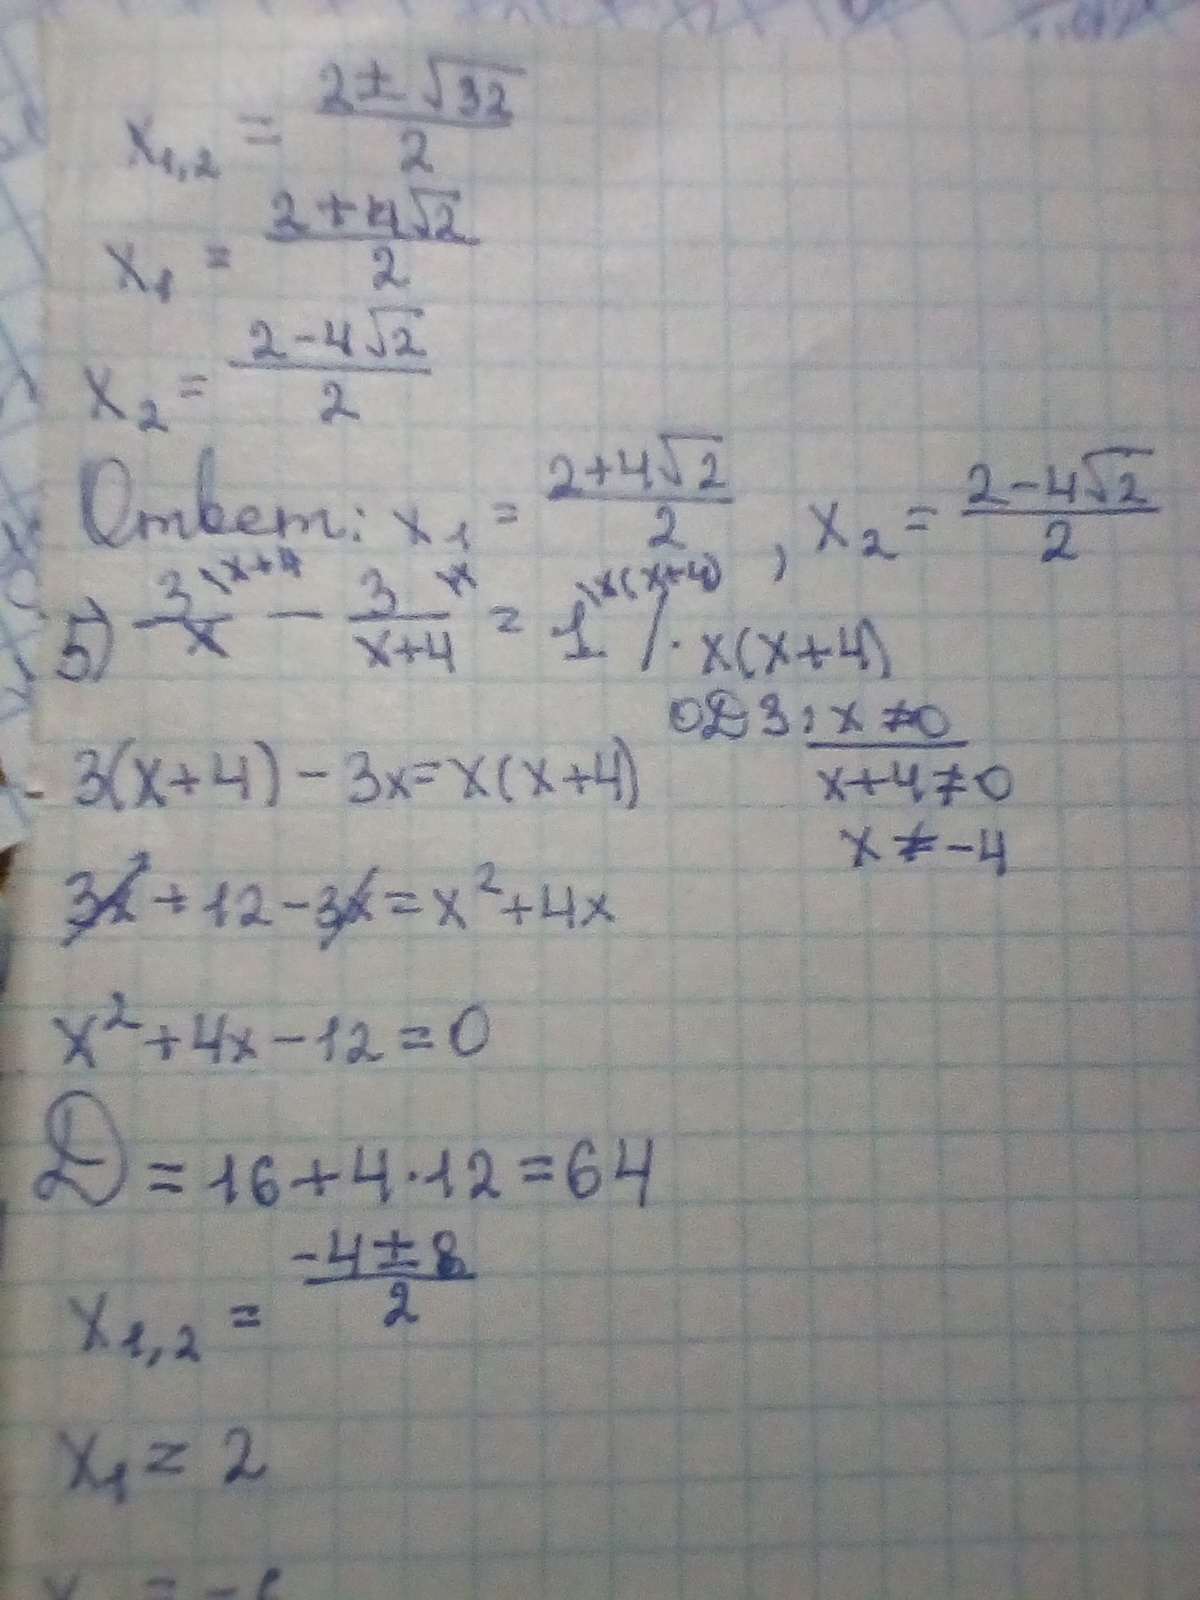 x₁,₂ = (2 ± √32)/2
x₁ = (2 + 4√2)/2
x₂ = (2 - 4√2)/2
Ответ: x₁ = (2 + 4√2)/2, x₂ = (2 - 4√2)/2
5) 3/x \x+4 - 3/(x+4) \x = 1 \x(x+4) / · x(x+4)
ОДЗ: x ≠ 0
x + 4 ≠ 0
3(x+4) - 3x = x(x+4)
x ≠ -4
3x + 12 - 3x = x² + 4x
x² + 4x - 12 = 0
D = 16 + 4 · 12 = 64
x₁,₂ = (-4 ± 8)/2
x₁ = 2